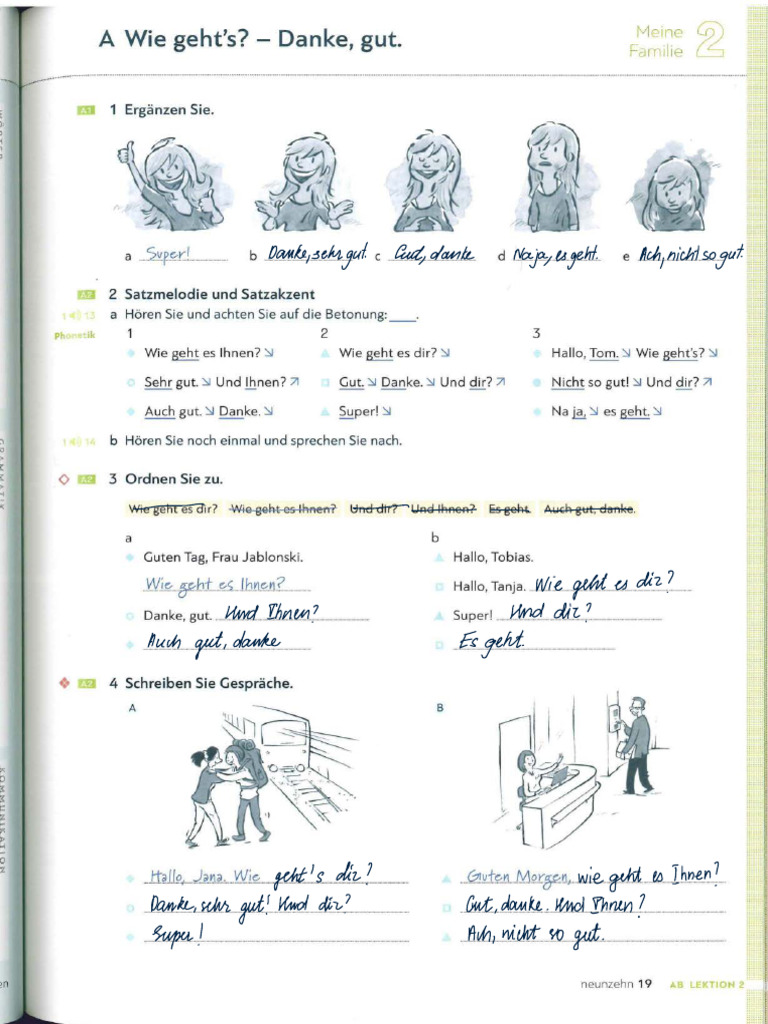 A Wie geht's? – Danke, gut.
Meine
Familie 2
A1 1 Ergänzen Sie.
a Super! b Danke, sehr gut. c Gut, danke d Na ja, es geht. e Ach, nicht so gut.
A2 2 Satzmelodie und Satzakzent
1 13 a Hören Sie und achten Sie auf die Betonung: ____.
Phonetik
1 2 3
Wie geht es Ihnen? ↘ Wie geht es dir? ↘ Hallo, Tom. ↘ Wie geht's? ↘
Sehr gut. ↘ Und Ihnen? ↗ Gut. ↘ Danke. ↘ Und dir? ↗ Nicht so gut! ↘ Und dir? ↗
Auch gut. ↘ Danke. ↘ Super! ↘ Na ja, ↘ es geht. ↘
1 14 b Hören Sie noch einmal und sprechen Sie nach.
A2 3 Ordnen Sie zu.
Wie geht es dir? Wie geht es Ihnen? Und dir? Und Ihnen? Es geht. Auch gut, danke.
a b
Guten Tag, Frau Jablonski. Hallo, Tobias.
Wie geht es Ihnen? Hallo, Tanja. Wie geht es dir?
Danke, gut. Und Ihnen? Super! Und dir?
Auch gut, danke Es geht.
A2 4 Schreiben Sie Gespräche.
A B
Hallo, Jana. Wie geht's dir? Guten Morgen, wie geht es Ihnen?
Danke, sehr gut! Und dir? Gut, danke. Und Ihnen?
Super! Ach, nicht so gut.
neunzehn 19 AB LEKTION 2
GRAMMATIK
KOMMUNIKATION
en